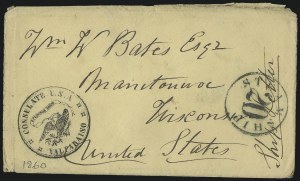 Wm W Bates Esqr
Manetouwoc
Wisconsin
United States
CONSULATE U.S.A.
VALPARAISO
20
Ship Letter
1860